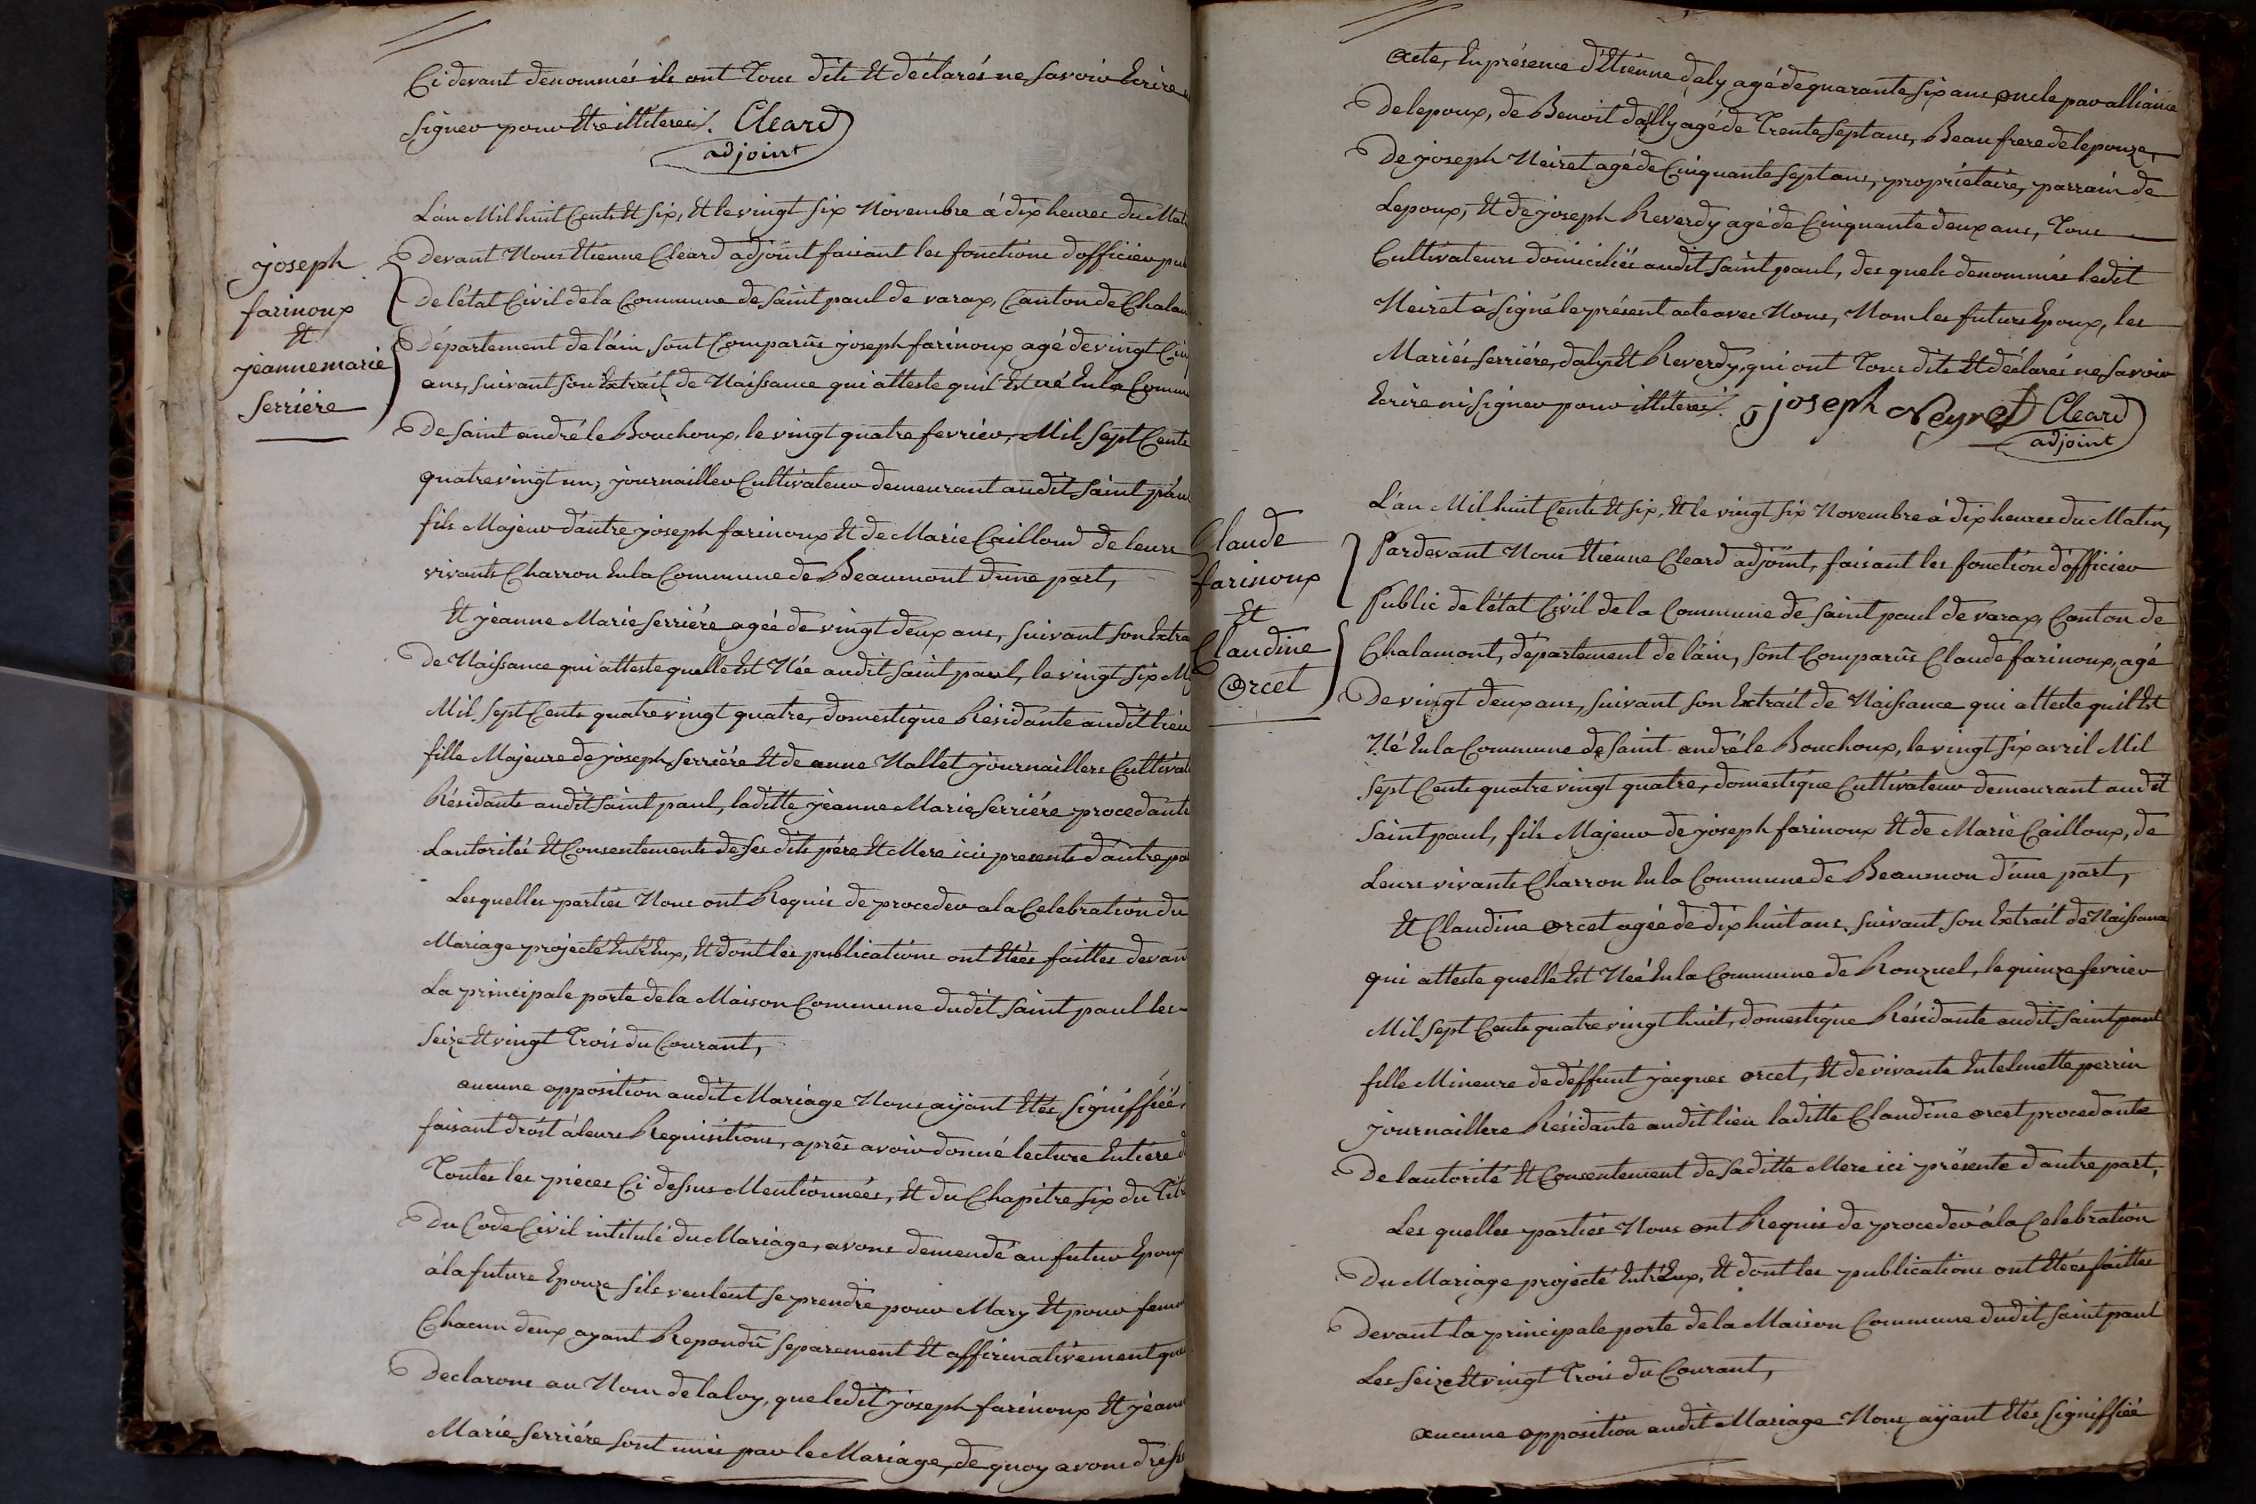 Ci devant denommés ils ont Tous dits Et déclarés ne savoir Ecrire
signer pour Etre illiterés. Cleard
adjoint
joseph
farinoux
Et
jeanne marie
serriére
L'an Mil huit Cents Et six, Et le vingt six Novembre á dix heures du Mat
Devant Nous Etienne Cleard adjoint faisant les fonctions d'officier pub
De l'état Civil de la Commune de saint paul de varax, Canton de Chalam
Département de l'ain, sont Comparûs joseph farinoux agé de vingt Cin
ans, suivant son Extrait de Naissance qui atteste quil Est né En la Commu
De saint andré le Bouchoux, le vingt quatre fevrier, Mil sept Cents
quatre vingt un, journailler Cultivateur demeurant audit saint pau
fils Majeur d'autre joseph farinoux Et de Marie Cailloud de leurs
vivants Charron En la Commune de Beaumont d'une part,
Et jeanne Marie serriére agée de vingt deux ans, suivant son Extra
De Naissance qui atteste quelle Est Née audit saint paul, le vingt six M
Mil sept Cents quatre vingt quatre, domestique Résidante audit lieu
fille Majeure de joseph serriére Et de anne Nallet journaillers Cultivat
Résidants audit saint paul, laditte jeanne Marie serriére procedante
L'autorités Et Consentements de ses dits pére Et Mere icis presents d'autre pa
Lesquelles parties Nous ont Requis de proceder a la Celebration du
Mariage projecté Entr'Eux, Et dont les publications ont Etées faittes devan
La principale porte de la Maison Commune dudit saint paul les
seize Et vingt Trois du Courant,
aucune opposition audit Mariage Nous aÿant Etés signiffiée,
faisant droit á leurs Requisitions, aprês avoir donné lecture Entiere d
Toutes les piéces Ci dessus Mentionnées, Et du Chapitre six du Titr
Du Code Civil intitulé du Mariage, avons demendé au futur Epoux
á la future Epouze sils veulent se prendre pour Mary Et pour femm
Chacun d'eux ayant Repondû separement Et affirmativement que
Declarons au Nom de la loy, que ledit joseph farinoux Et jeann
Marie serriére sont unis par le Mariage, de quoy avons dressé
acte, En présence d'Etienne daly agé de quarante six ans oncle par alliance
De lepoux, de Benoit dally agé de Trente sept ans, Beau frere de lepouze,
De joseph Neiret agé de Cinquante sept ans, propriétaire, parrain de
Lepoux, Et de joseph Reverdy agé de Cinquante deux ans, Tous
Cultivateurs domiciliés audit saint paul, des quels denommés ledit
Neiret à signé le présent acte avec Nous, Non les futurs Epoux, les
Mariés serriére, daly Et Reverdy, qui ont Tous dits Et déclarés ne savoir
Ecrire ni signer pour illiterés. joseph Neyret Cleard
adjoint
Claude
farinoux
Et
Claudine
Orcet
L'an Mil huit Cents Et six, Et le vingt six Novembre á dix heures du Matin,
Pardevant Nous Etienne Cleard adjoint, faisant les fonction d'officier
Public de l'état Civil de la Commune de saint paul de varax, Canton de
Chalamont, département de l'ain, sont Comparûs Claude farinoux, agé
De vingt deux ans, suivant son Extrait de Naissance qui atteste quil Est
Né En la Commune de saint andré le Bouchoux, le vingt six avril Mil
sept Cents quatre vingt quatre, domestique Cultivateur demeurant audit
saint paul, fils Majeur de joseph farinoux Et de Marie Cailloux, de
Leurs vivants Charron En la Commune de Beaumon d'une part,
Et Claudine orcet agée de dix huit ans, suivant son Extrait de Naissance
qui atteste quelle Est Née En la Commune de Ronzuel, le quinze fevrier
Mil sept Cents quatre vingt huit, domestique Résidante audit saint paul
fille Mineure de déffunt jacques orcet, Et de vivante Entelmette perrin
journaillere Résidante audit lieu laditte Claudine orcet procedante
De lautorité Et Consentement de saditte Mere ici présente d'autre part,
Les quelles parties Nous ont Requis de proceder á la Celebration
Du Mariage projecté Entr'Eux, Et dont les publications ont Etées faittes
Devant la principale porte de la Maison Commune dudit saint paul
Les seize Et vingt Trois du Courant,
aucune opposition audit Mariage Nous aÿant Etés signiffiée